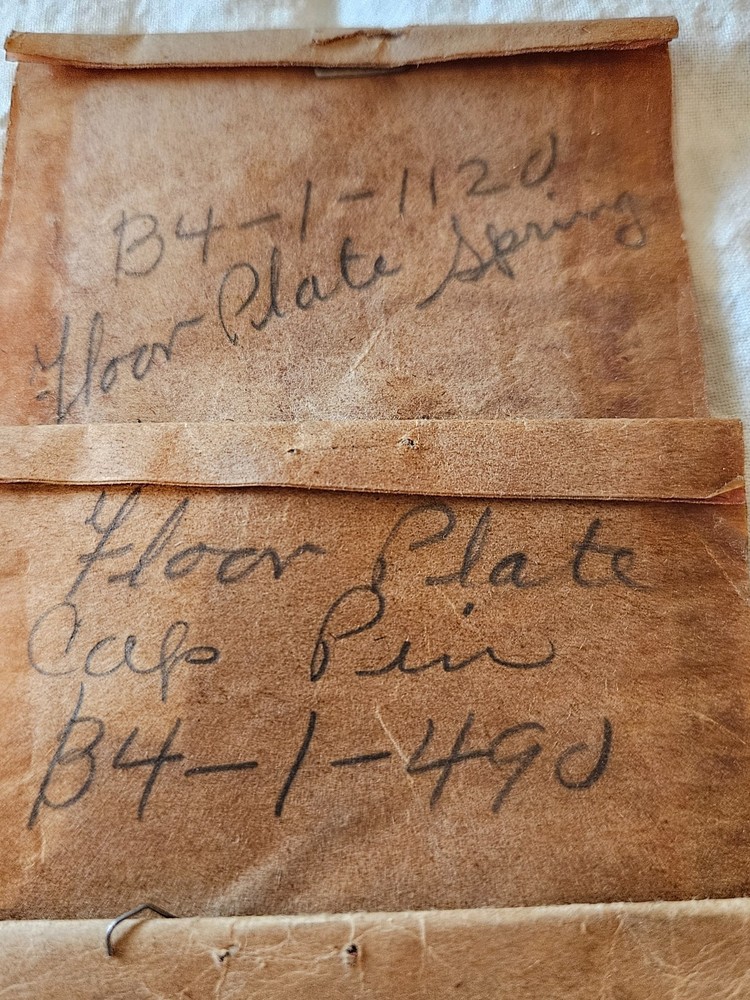 B4-1-1120
Floor Plate Spring
Floor Plate
Cap Pin
B4-1-490